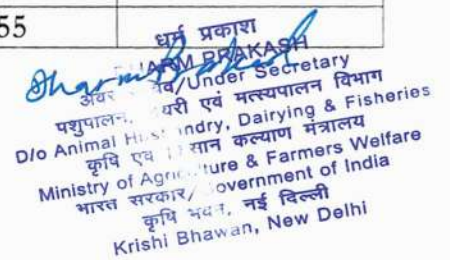 55
धर्म प्रकाश
Dharm Prakash
DHARM PRAKASH
/Under Secretary
पशुपालन, एवं मत्स्यपालन विभाग
D/o Animal Husbandry, Dairying & Fisheries
कृषि एवं किसान कल्याण मंत्रालय
Ministry of Agriculture & Farmers Welfare
भारत सरकार/Government of India
कृषि भवन, नई दिल्ली
Krishi Bhawan, New Delhi